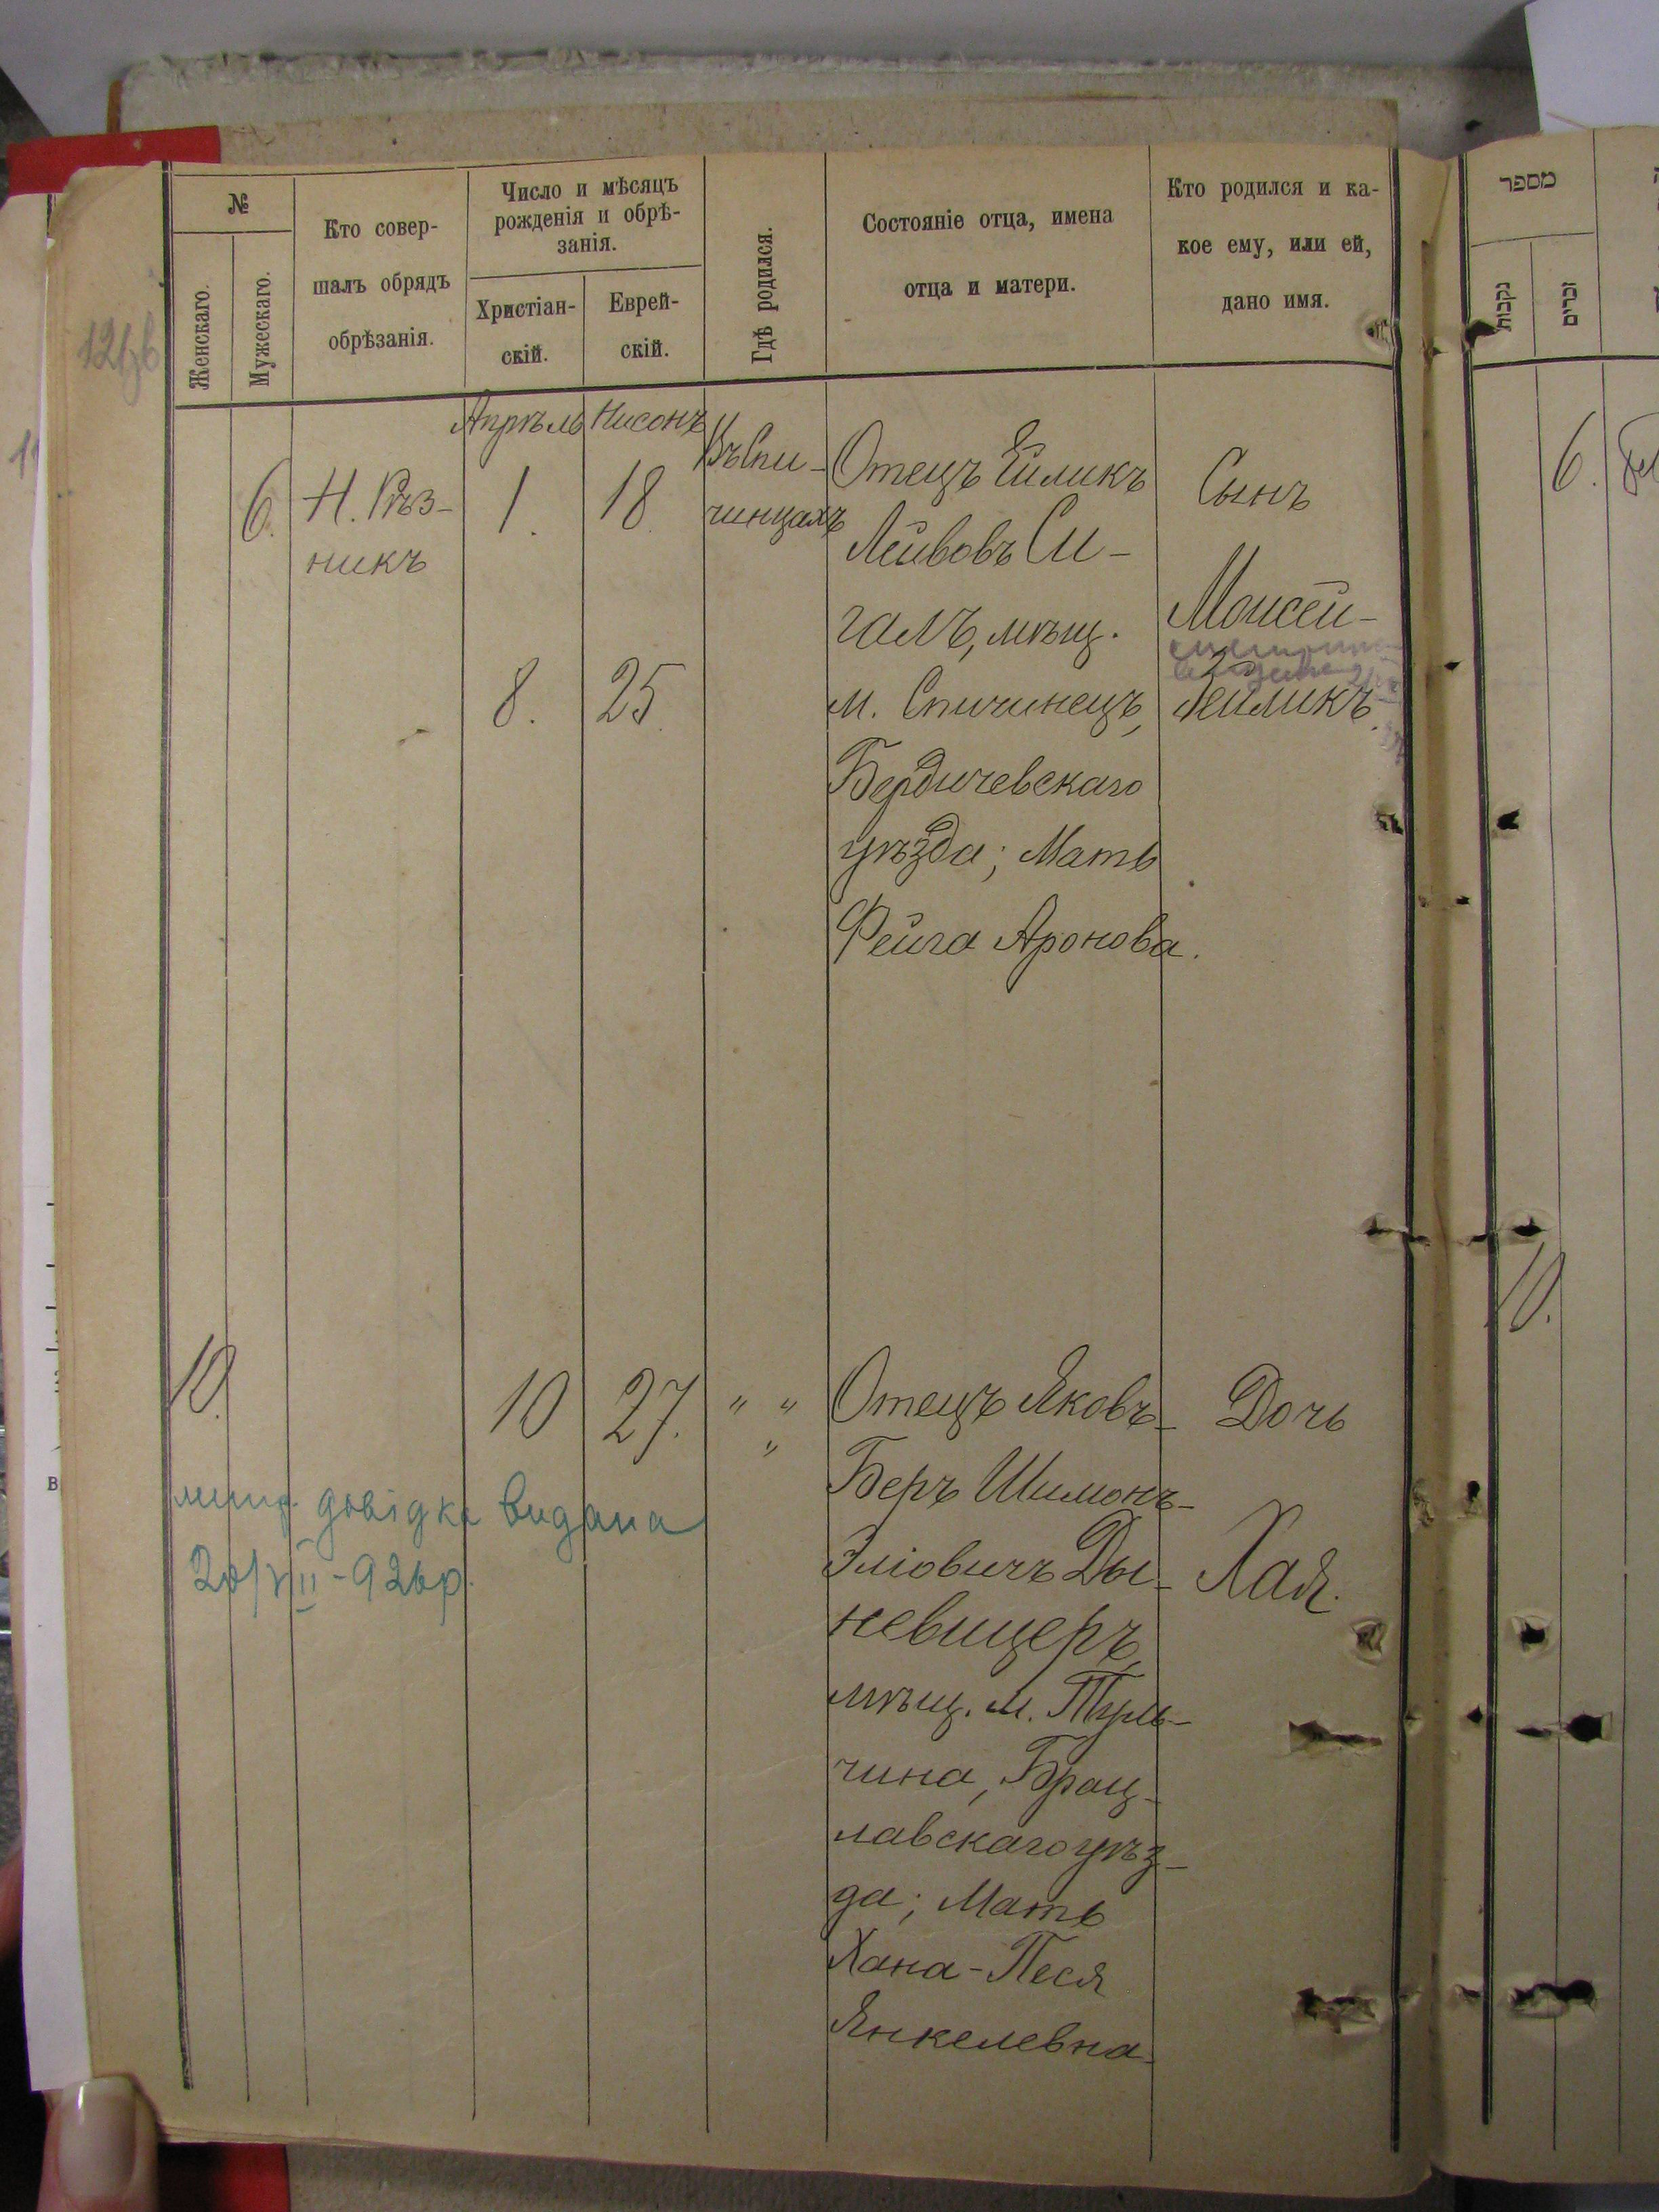 №
Женскаго.
Мужескаго.
Кто совер-
шалъ обрядъ
обрѣзанія.
Число и мѣсяцъ
рожденія и обрѣ-
занія.
Христіан-
скій.
Еврей-
скій.
Гдѣ родился.
Состояніе отца, имена
отца и матери.
Кто родился и ка-
кое ему, или ей,
дано имя.
מספר
נקבות
זכרים
Апрѣль Нисонъ
6. Н. Рѣз-
никъ
1. 18.
8. 25.
Въ Спи-
чинцахъ
Отецъ Ейликъ
Лейбовъ Си-
галъ, мѣщ.
м. Спичинецъ,
Бердичевскаго
уѣзда; Мать
Фейга Аронова.
Сынъ
Моисей-
Зейликъ.
6.
10. 10 27. " "
"
Отецъ Яковъ-
Беръ Шимонъ-
Эліовичъ Ды-
невицеръ,
мѣщ. м. Туль-
чина, Брац-
лавскаго уѣз-
да; Мать
Хана-Песя
Янкелевна.
Дочь
Хая.
довідка видана
10.